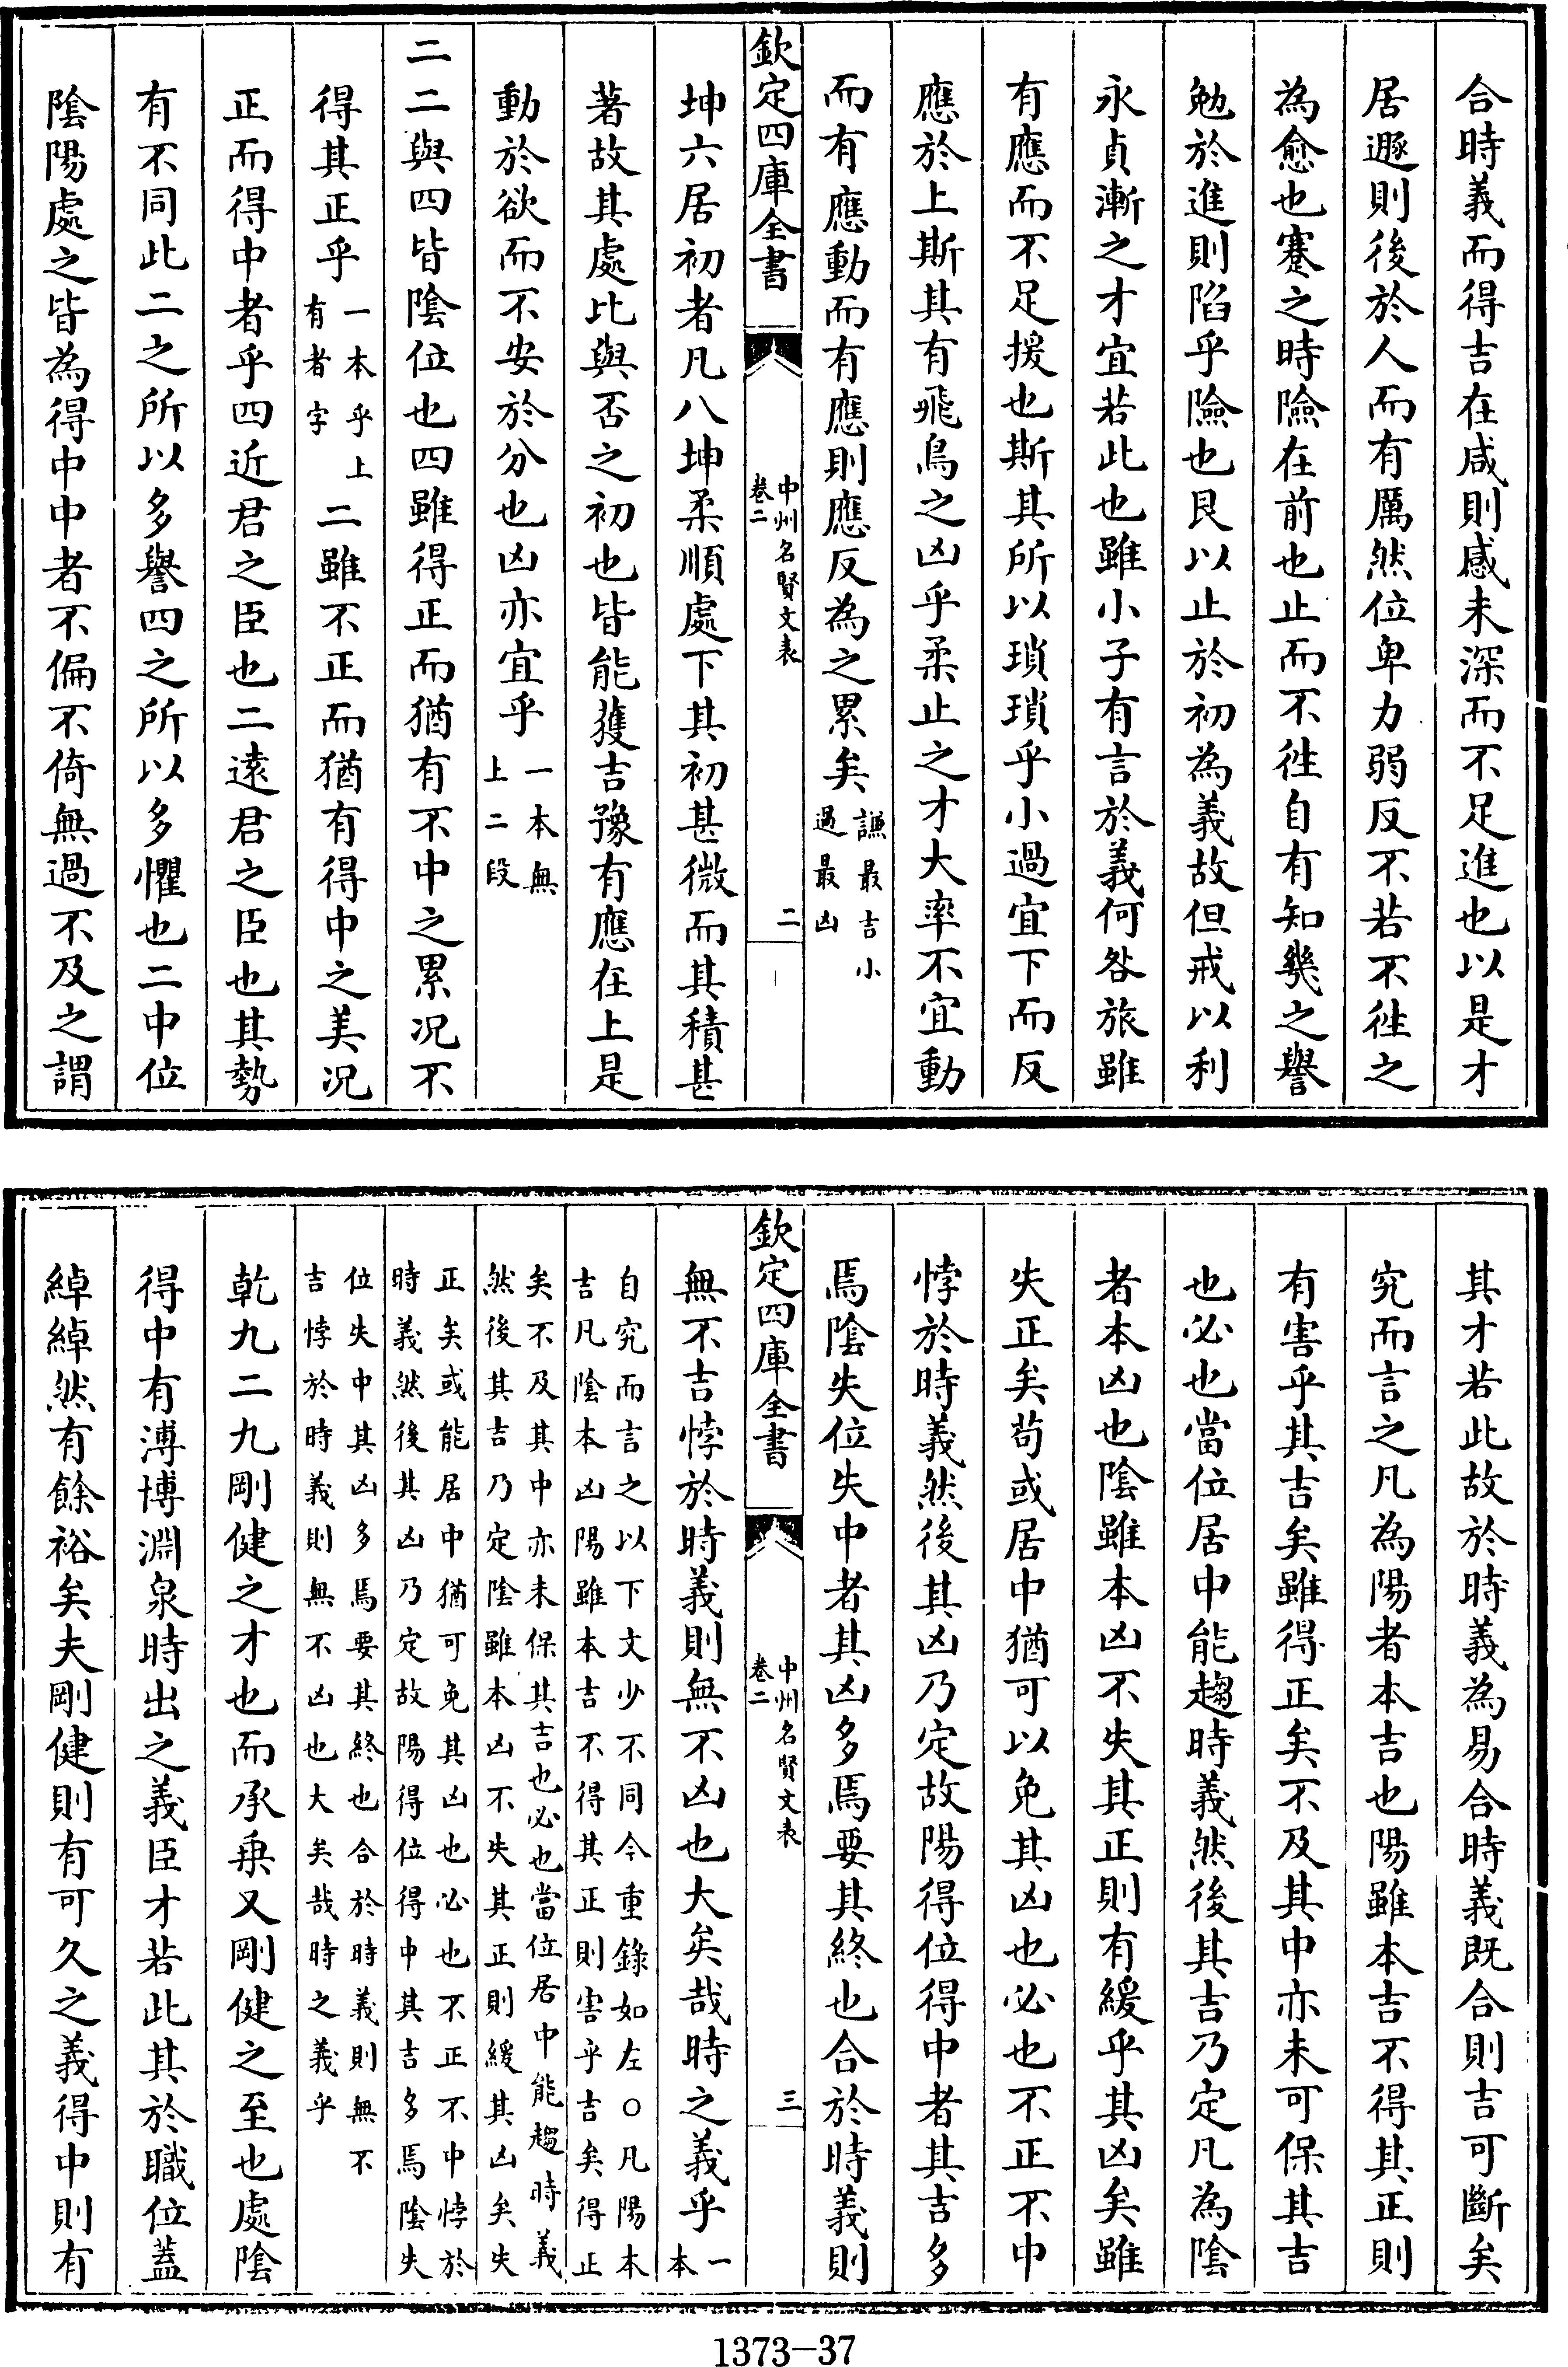 合時義而得吉在咸則感未深而不足進也以是才
居遯則後於人而有厲然位卑力弱反不若不徃之
為愈也蹇之時險在前也止而不徃自有知幾之譽
勉於進則陷乎險也艮以止於初為義故但戒以利
永貞漸之才宜若此也雖小子有言於義何咎旅雖
有應而不足援也斯其所以瑣瑣乎小過宜下而反
應於上斯其有飛鳥之凶乎柔止之才大率不宜動
而有應動而有應則應反為之累矣謙最吉小
過最凶
欽定四庫全書
中州名賢文表
卷二
二
坤六居初者凡八坤柔順處下其初甚微而其積甚
著故其處比與否之初也皆能獲吉豫有應在上是
動於欲而不安於分也凶亦宜乎一本無
上二段
二二與四皆陰位也四雖得正而猶有不中之累况不
得其正乎一本乎上
有者字二雖不正而猶有得中之美况
正而得中者乎四近君之臣也二遠君之臣也其勢
有不同此二之所以多譽四之所以多懼也二中位
陰陽處之皆為得中中者不偏不倚無過不及之謂
其才若此故於時義為易合時義既合則吉可斷矣
究而言之凡為陽者本吉也陽雖本吉不得其正則
有害乎其吉矣雖得正矣不及其中亦未可保其吉
也必也當位居中能趨時義然後其吉乃定凡為陰
者本凶也陰雖本凶不失其正則有緩乎其凶矣雖
失正矣苟或居中猶可以免其凶也必也不正不中
悖於時義然後其凶乃定故陽得位得中者其吉多
焉陰失位失中者其凶多焉要其終也合於時義則
欽定四庫全書
中州名賢文表
卷二
三
無不吉悖於時義則無不凶也大矣哉時之義乎一
本
自究而言之以下文少不同今重錄如左○凡陽本
吉凡陰本凶陽雖本吉不得其正則害乎吉矣得正
矣不及其中亦未保其吉也必也當位居中能趨時義
然後其吉乃定陰雖本凶不失其正則緩其凶矣失
正矣或能居中猶可免其凶也必也不正不中悖於
時義然後其凶乃定故陽得位得中其吉多焉陰失
位失中其凶多焉要其終也合於時義則無不
吉悖於時義則無不凶也大矣哉時之義乎
乾九二九剛健之才也而承乗又剛健之至也處陰
得中有溥博淵泉時出之義臣才若此其於職位蓋
綽綽然有餘裕矣夫剛健則有可久之義得中則有
1373-37